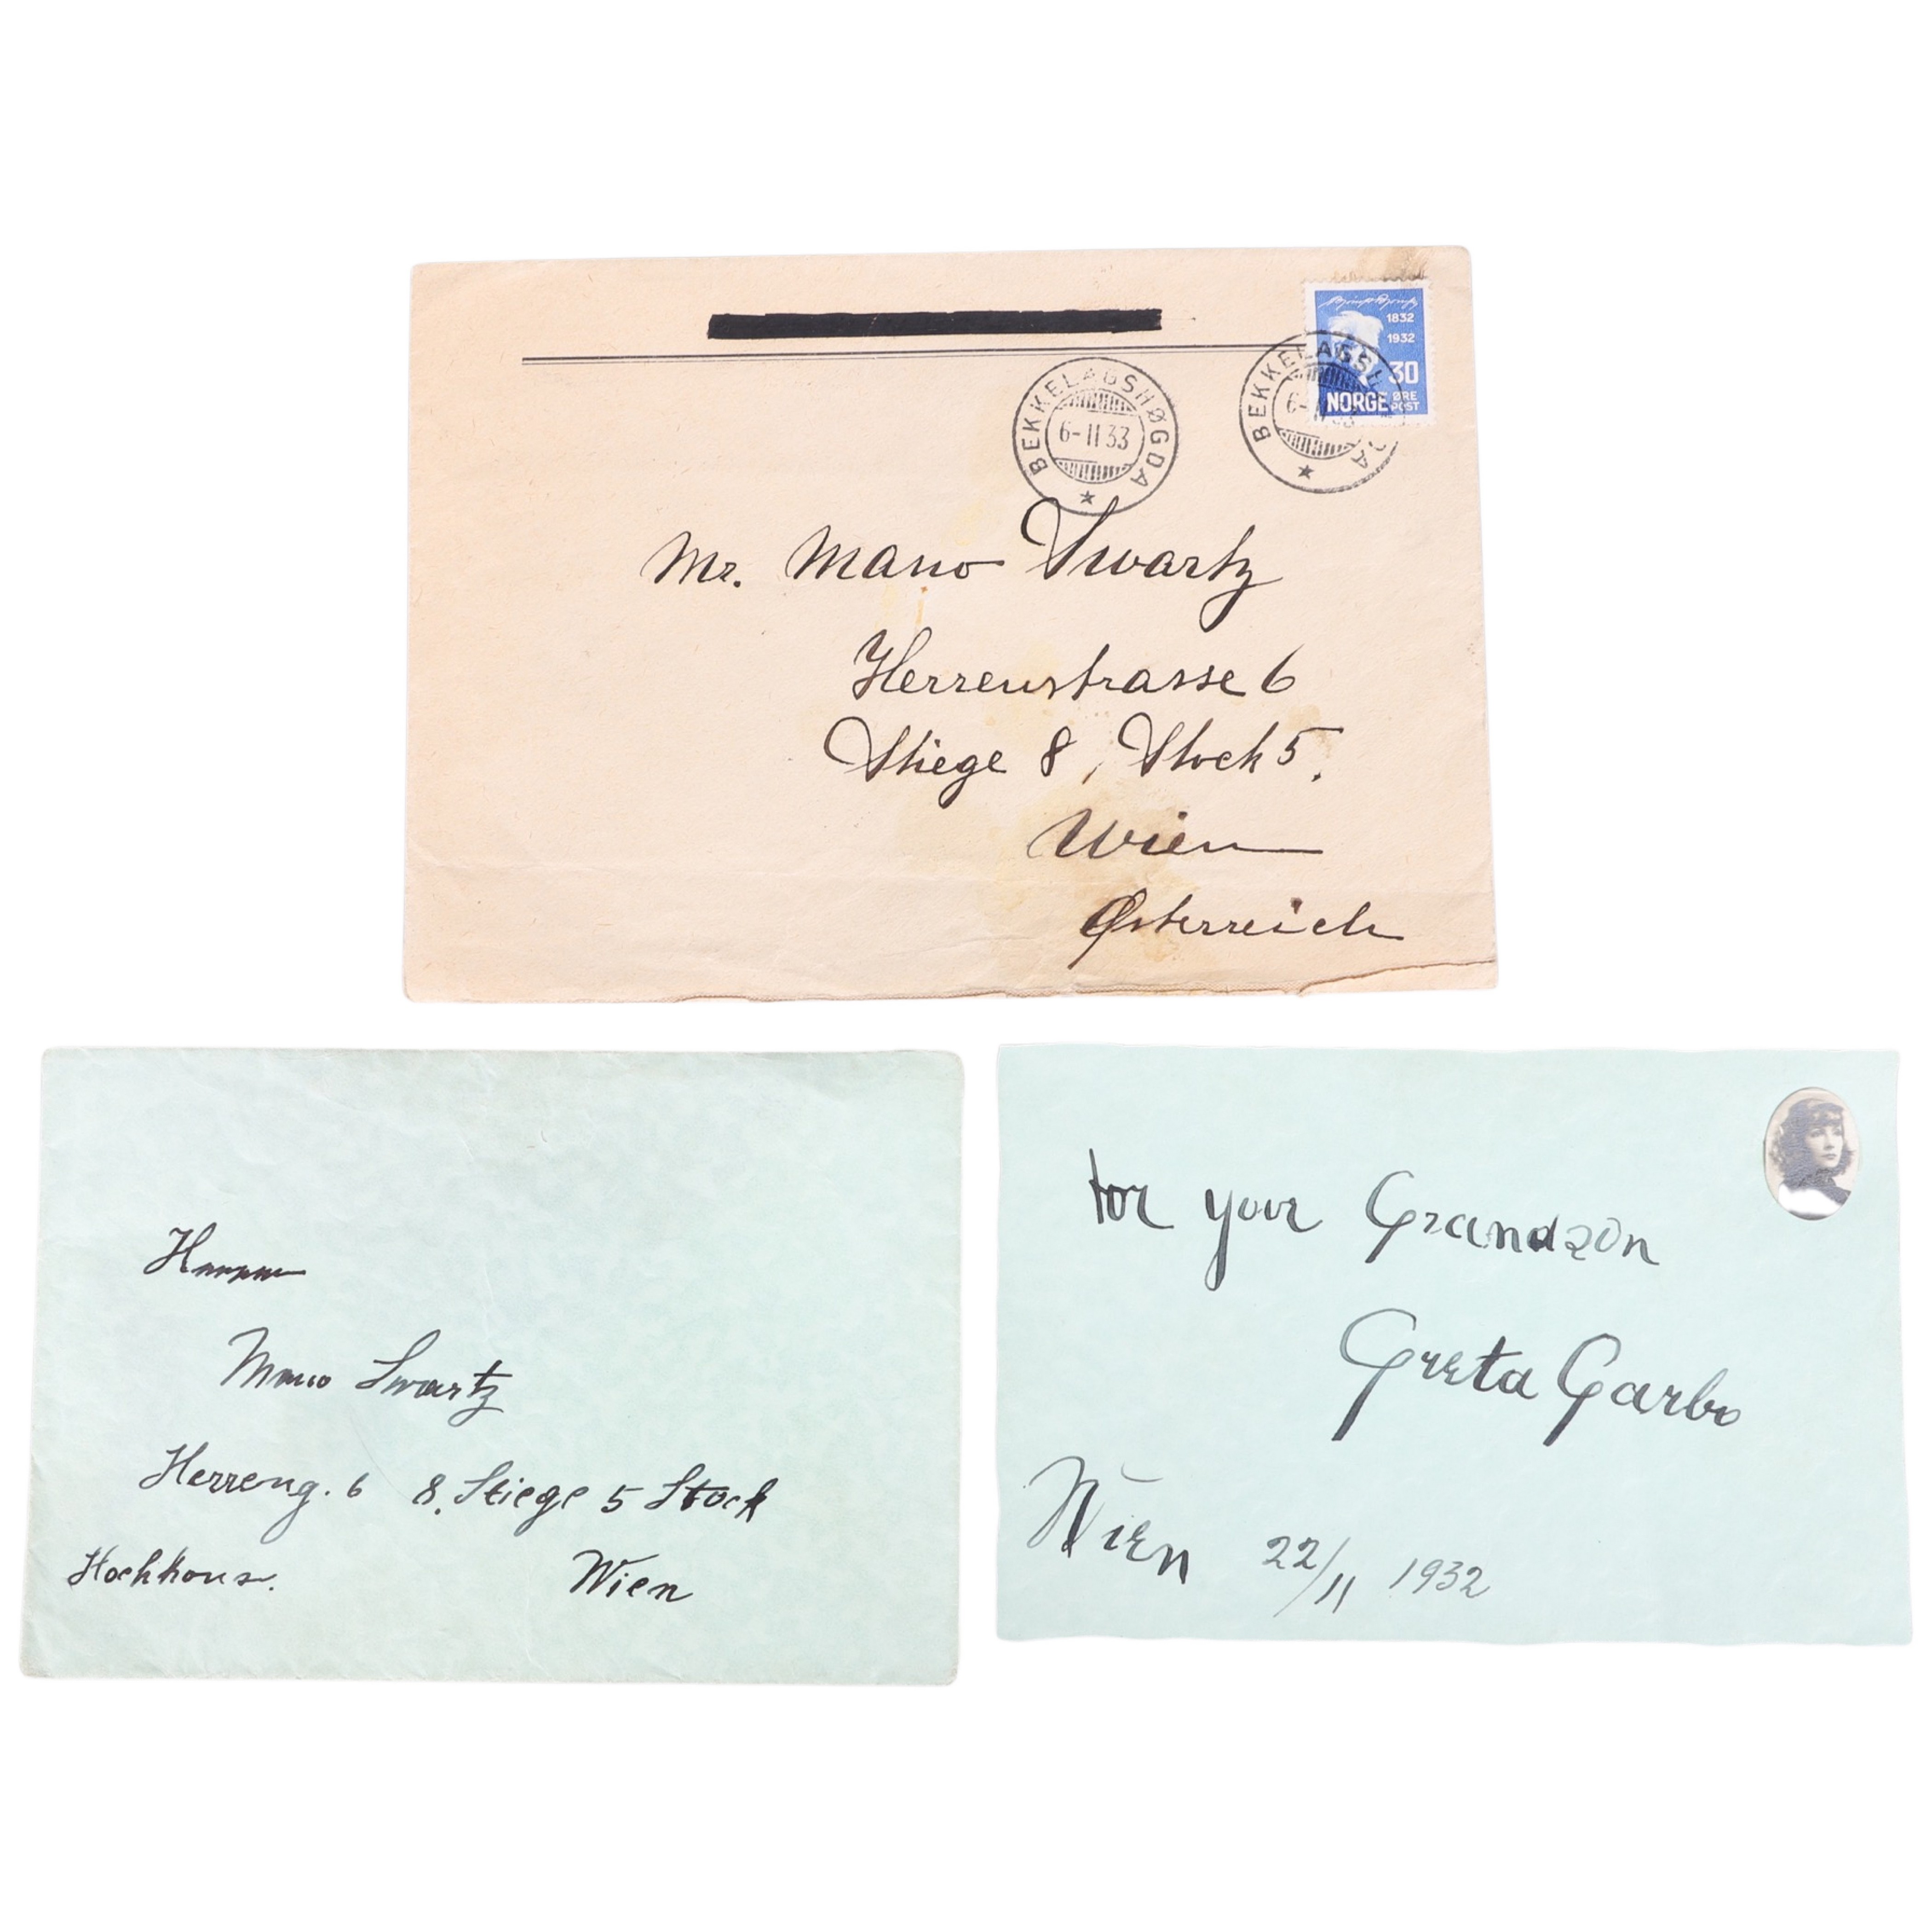 1832
1932
30
NORGE ØRE
POST
BEKKELAGSHØGDA
6-II 33
BEKKELAGSH DA
Mr. Mano Swartz
Herrenstrasse 6
Stiege 8, Stock 5.
Wien
Østerreich
Herrn
Mano Swartz
Herreng. 6 8. Stiege 5 Stock
Hochhaus. Wien
for your Grandson
Greta Garbo
Wien 22/11 1932